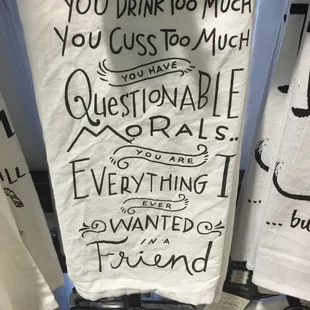 YOU DRINK TOO MUCH
YOU CUSS TOO MUCH
YOU HAVE
QUESTIONABLE
MORALS..
YOU ARE
EVERYTHING I
EVER
WANTED
IN A
Friend